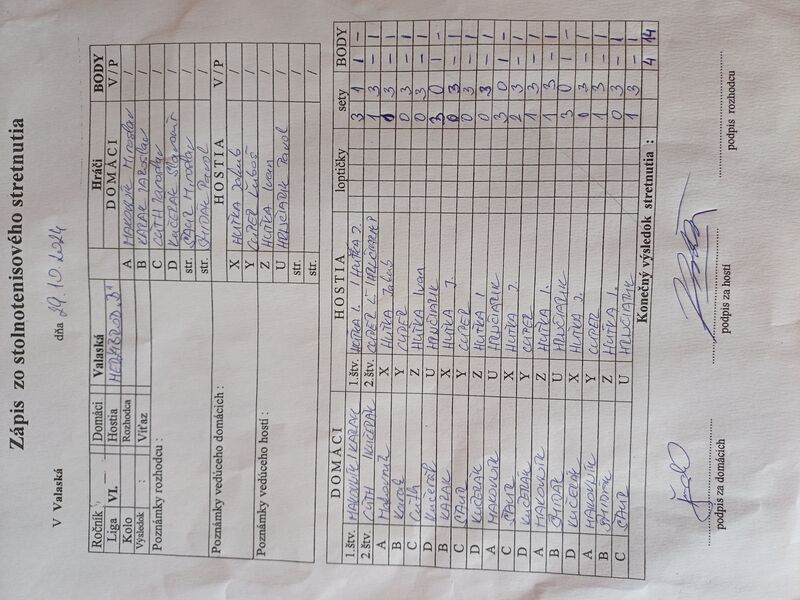 Zápis zo stolnotenisového stretnutia
V Valaská dňa 29.10.2024
Ročník: Domáci Valaská
Liga VI. Hostia
Kolo Rozhodca
Výsledok : Víťaz
Poznámky rozhodcu :
Poznámky vedúceho domácich :
Poznámky vedúceho hostí :
Hráči BODY
DOMÁCI V / P
A MAKOVNÍK Miroslav /
B KARAK JAROSLAV /
C CUTH Jaroslav /
D KUČERÁK /
str. Miroslav /
str. Pavol /
HOSTIA V/P
X HUTKA Jakub /
Y CUPER Ľuboš /
Z HUTKA Ivan /
U Pavol /
str. /
str. /
DOMÁCI HOSTIA loptičky sety BODY
1.štv. MAKOVNÍK / KARAK 1.štv. HUTKA I. / HUTKA J. 3 1 1 -
2.štv. CUTH / KUČERÁK 2.štv. CUPER Ľ 1 3 - 1
A Makovník X HUTKA Jakub 0 3 - 1
B Karak Y CUPER 0 3 - 1
C Cuth Z HUTKA Ivan 0 3 - 1
D Kučerák U 3 0 1 -
B KARAK X HUTKA J. 0 3 - 1
C Y CUPER 0 3 - 1
D KUČERÁK Z HUTKA I 0 3 - 1
A MAKOVNÍK U 0 3 - 1
C X HUTKA J. 3 0 1 -
D KUČERÁK Y CUPER 2 3 - 1
A MAKOVNÍK Z HUTKA I. 1 3 - 1
B U 1 3 - 1
D KUČERÁK X HUTKA J. 3 0 1 -
A MAKOVNÍK Y CUPER 0 3 - 1
B Z HUTKA I. 1 3 - 1
C U 1 3 - 1
Konečný výsledok stretnutia : 4 14
podpis za domácich podpis za hostí podpis rozhodcu